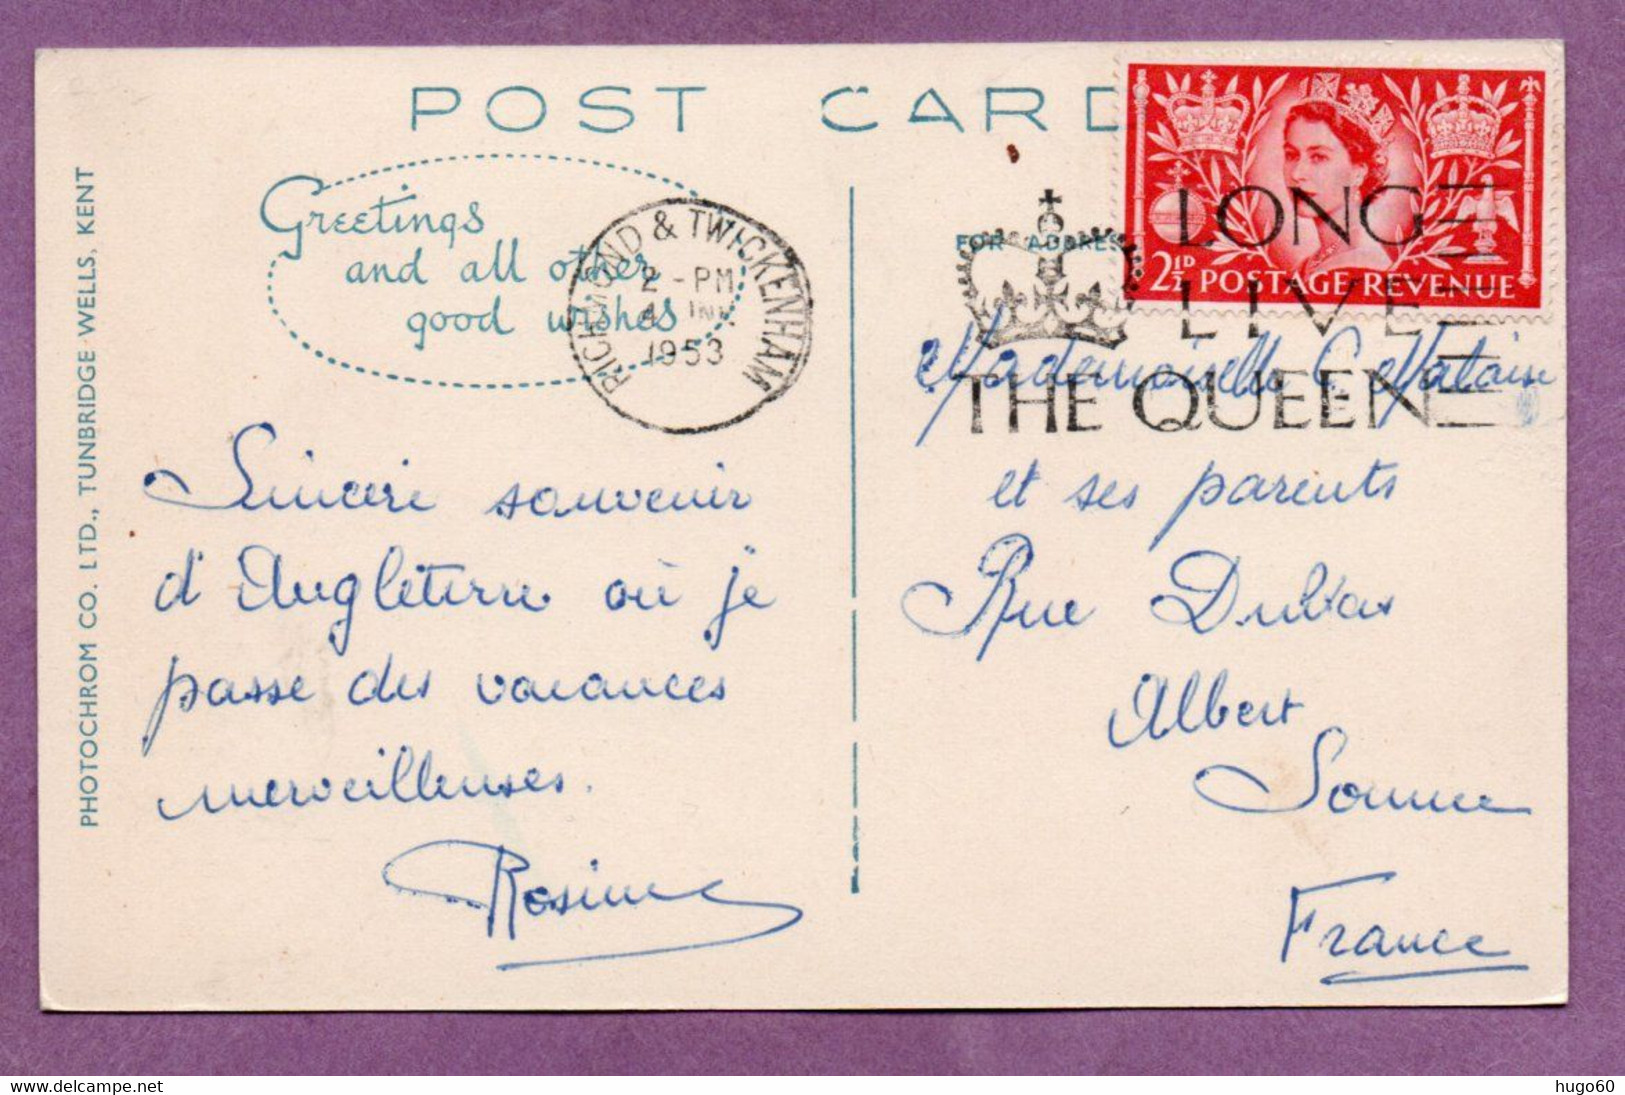 POST CARD
Greetings
and all other
good wishes
RICHMOND & TWICKENHAM
2 - PM
1953
FOR ADDRES
2½D POSTAGE REVENUE
LONG
LIVE
THE QUEEN
PHOTOCHROM CO. LTD., TUNBRIDGE WELLS, KENT
Sincère souvenir
d'Angleterre où je
passe des vacances
merveilleuses.
Mademoiselle
et ses parents
Rue
Albert
Somme
France
www.delcampe.net
hugo60